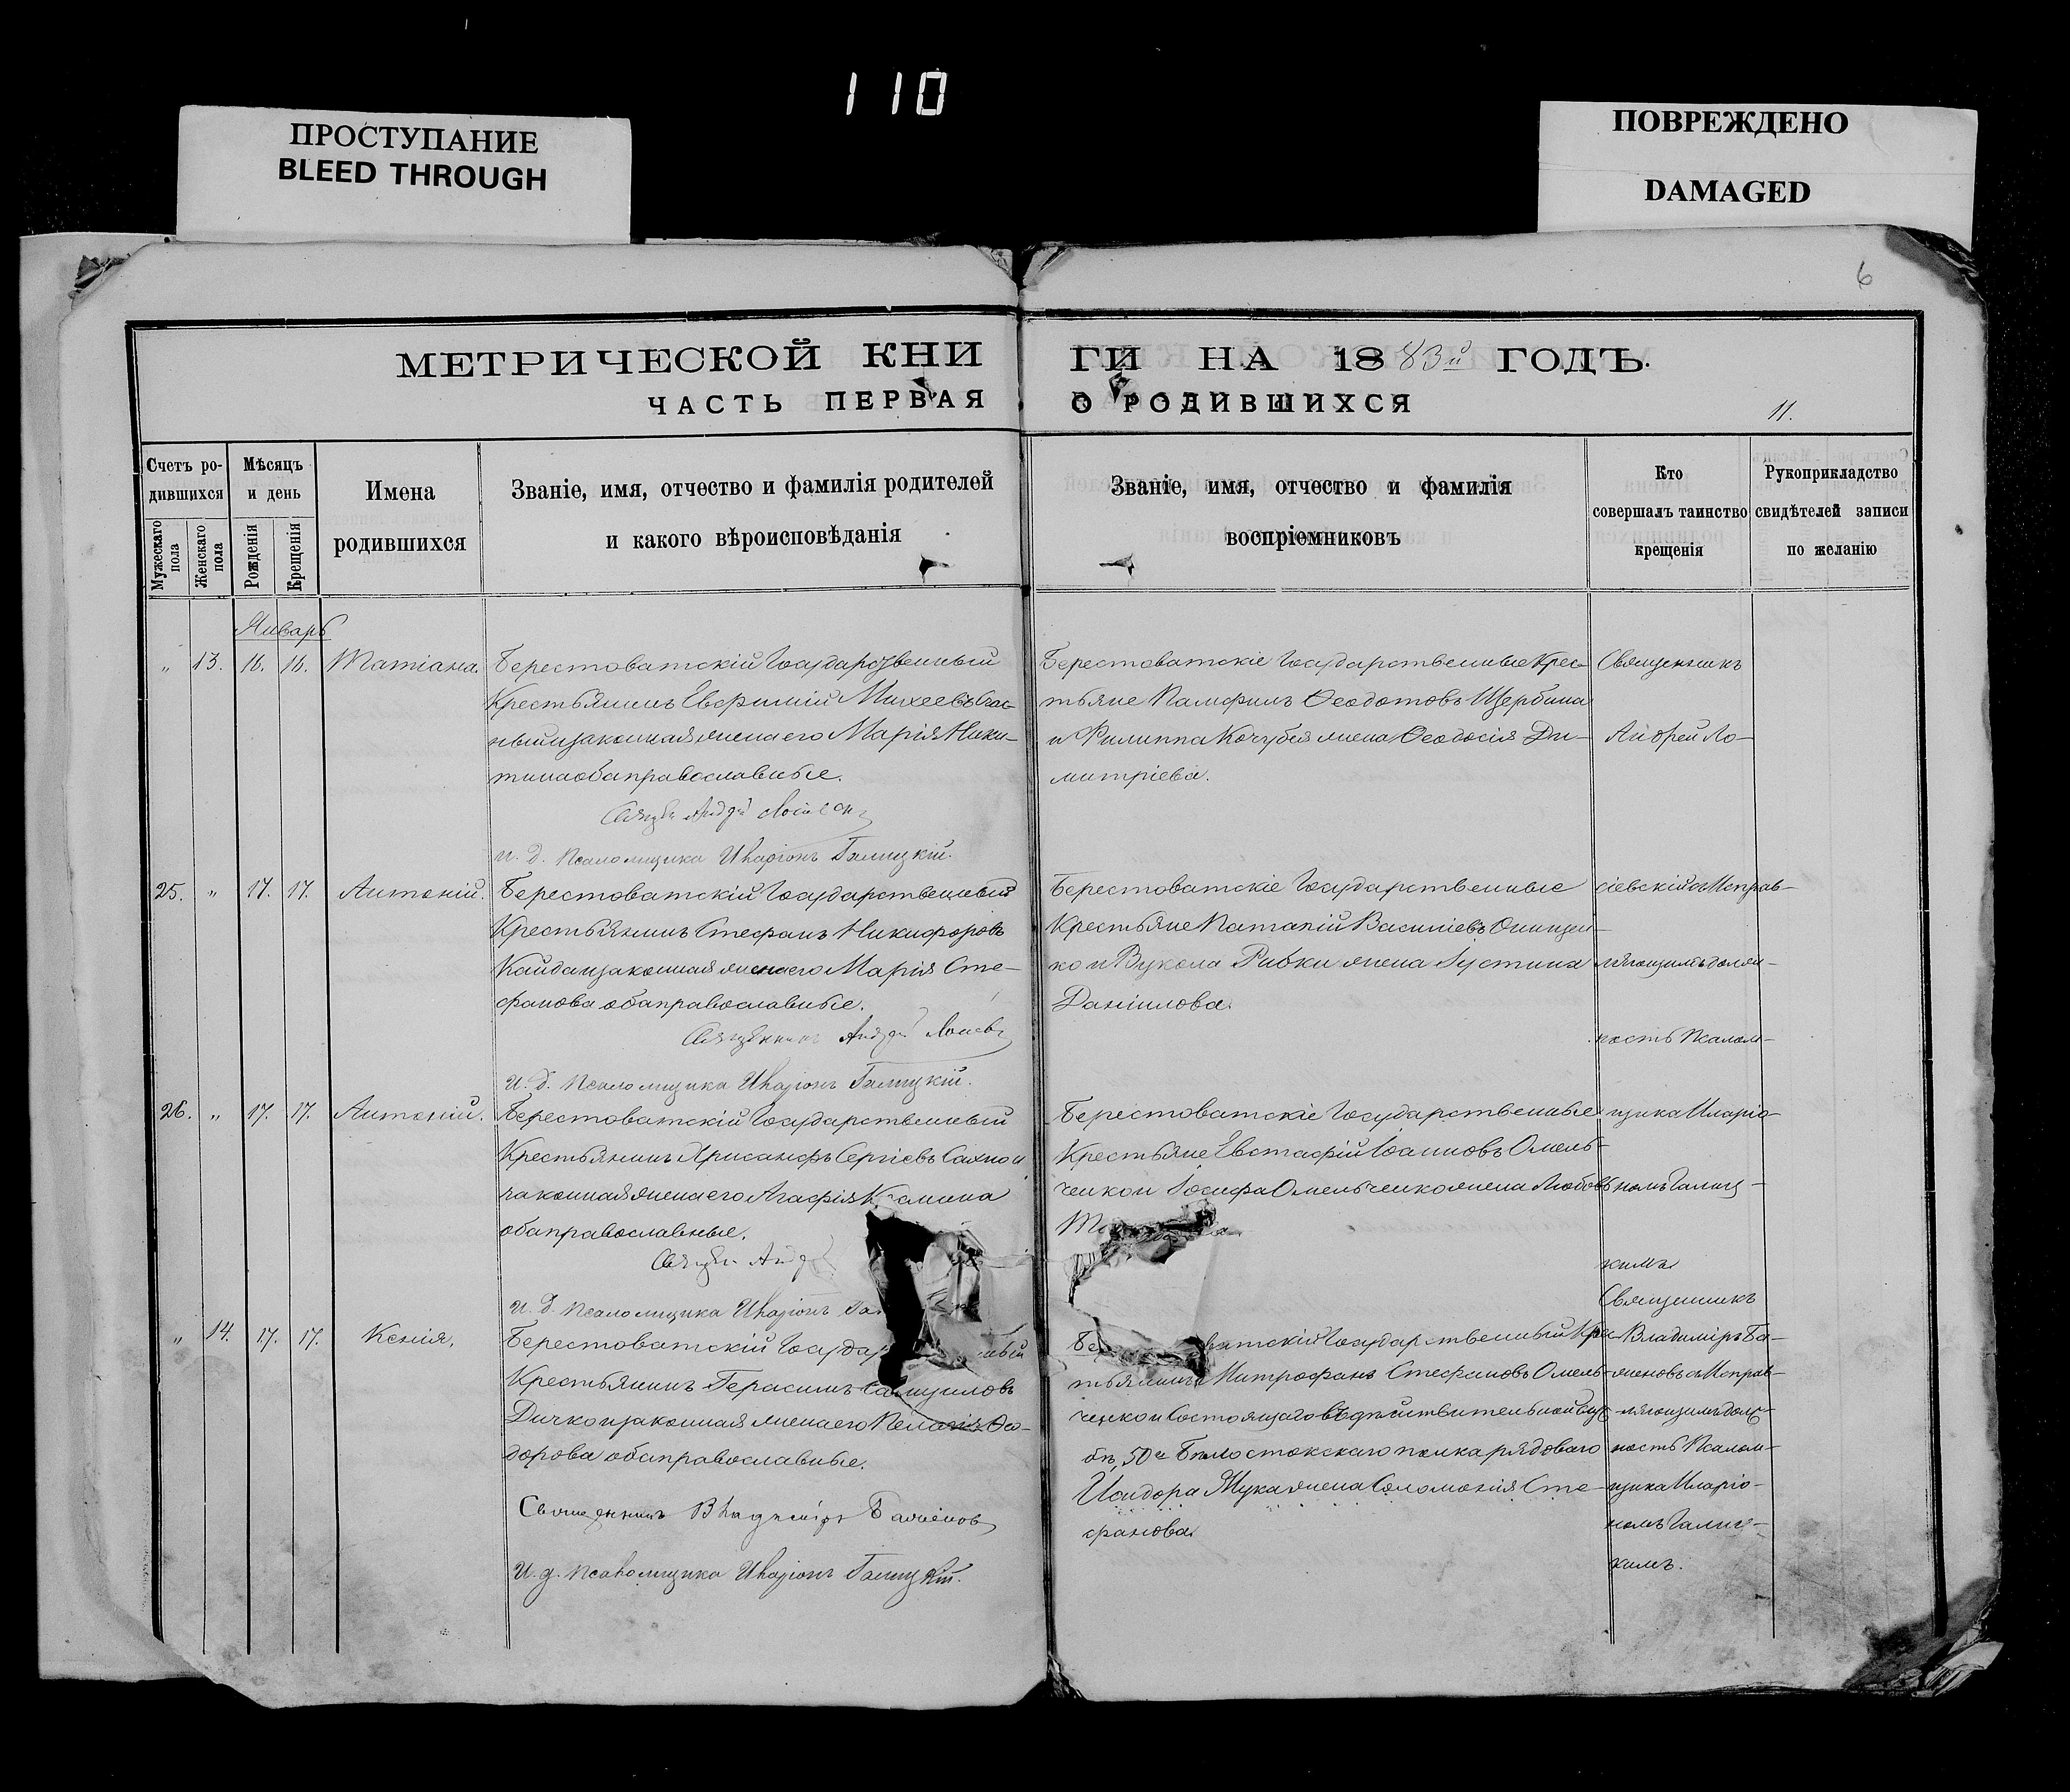 110
ПРОСТУПАНИЕ
BLEED THROUGH
ПОВРЕЖДЕНО
DAMAGED
6
МЕТРИЧЕСКОЙ КНИ
ГИ НА 1883й ГОДЪ.
ЧАСТЬ ПЕРВАЯ
О РОДИВШИХСЯ
11.
Счетъ ро-
дившихся
Мужескаго пола
Женскаго пола
Мѣсяцъ
и день
Рожденія
Крещенія
Имена
родившихся
Званіе, имя, отчество и фамилія родителей
и какого вѣроисповѣданія
Званіе, имя, отчество и фамилія
воспріемниковъ
Кто
совершалъ таинство
крещенія
Рукоприкладство
свидѣтелей записи
по желанію
Январь
„ 13. 16. 16. Татіана.
Берестоватскій Государственный
Крестьянинъ Евфимій Михеевъ
законная жена его Марія Ники-
тина оба православные.
Андрей
и. д. Псаломщика Иларіонъ Галицкій.
Берестоватскіе Государственные Крес-
тьяне Памфилъ Ѳеодотовъ Щербина
и Филиппа Кочубея жена Ѳеодосія Ди-
митріева.
Священникъ
Андрей Ло-
25. „ 17. 17. Антоній.
Берестоватскій Государственный
Крестьянинъ Стефанъ Никифоровъ
законная жена его Марія Сте-
фанова оба православные.
Священникъ Андрей
И. д. Псаломщика Иларіонъ Галицкій.
Берестоватскіе Государственные
Крестьяне Патапій Василіевъ Онищен-
ко и Вукола Рибки жена Іустина
Даніилова.
сіевскій съ Исправ-
ляющимъ долж-
ность Псалом-
26. „ 17. 17. Антоній.
Берестоватскій Государственный
Крестьянинъ Хрисанфъ Сергіевъ Сахно и
законная жена его Агафія
оба православные.
И. д. Псаломщика Иларіонъ
Берестоватскіе Государственные
Крестьяне Евстафій Іоанновъ Омель-
ченко и Іосифа Омельченко жена Любовь
щика Иларіо-
номъ Галиц-
кимъ
„ 14. 17. 17. Ксенія.
Берестоватскій
Крестьянинъ Герасимъ
Дичко и законная жена его Пелагія Ѳео-
дорова оба православные.
Священникъ Владиміръ
И. д. Псаломщика Иларіонъ Галицкій.
Государственный Крес-
тьянинъ Митрофанъ Стефановъ Омель-
ченко и Состоящаго въ дѣйствительной служ-
бѣ, 50го Бѣлостокскаго полка рядоваго
Исидора Жука жена Соломонія Сте-
фанова.
Священникъ
Владиміръ Ба-
женовъ съ Исправ-
ляющимъ долж-
ность Псалом-
щика Иларіо-
номъ Галиц-
кимъ.